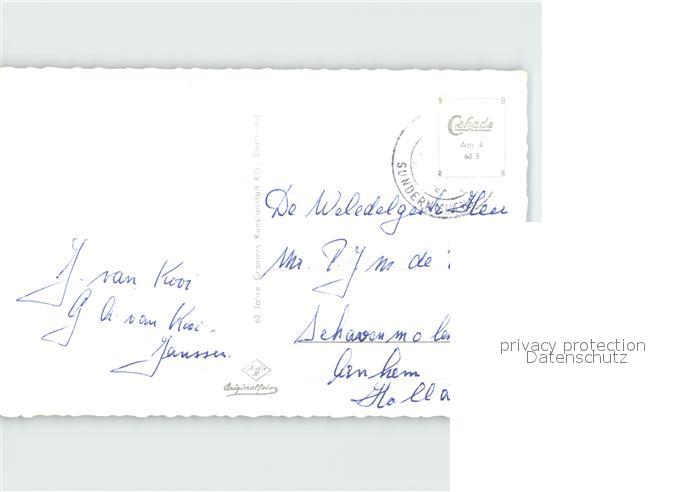 Cebade
Am 4
60 5
SUNDERN
60 Jahre Cramers Kunstanstalt KG., Dortmund
De Weledelgestr. Heer
Mr. P. J m de
Schavenmolen
Arnhem
Holla
J. van Kooi
G A. van Kooi-
Janssen.
Originalfoto
privacy protection
Datenschutz